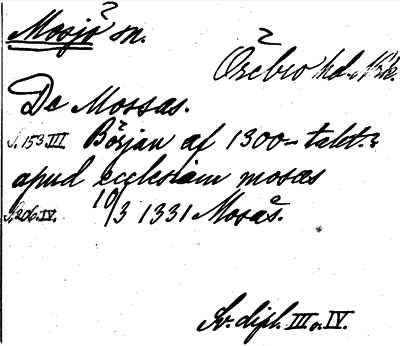 Mosjö sn.
Örebro hd. Nke.
De Mossas.
S. 153 III Början af 1300-talet.
apud ecclesiam mosas
S. 206. IV. 10/3 1331 Mosås.
Sv. dipl. III o. IV.